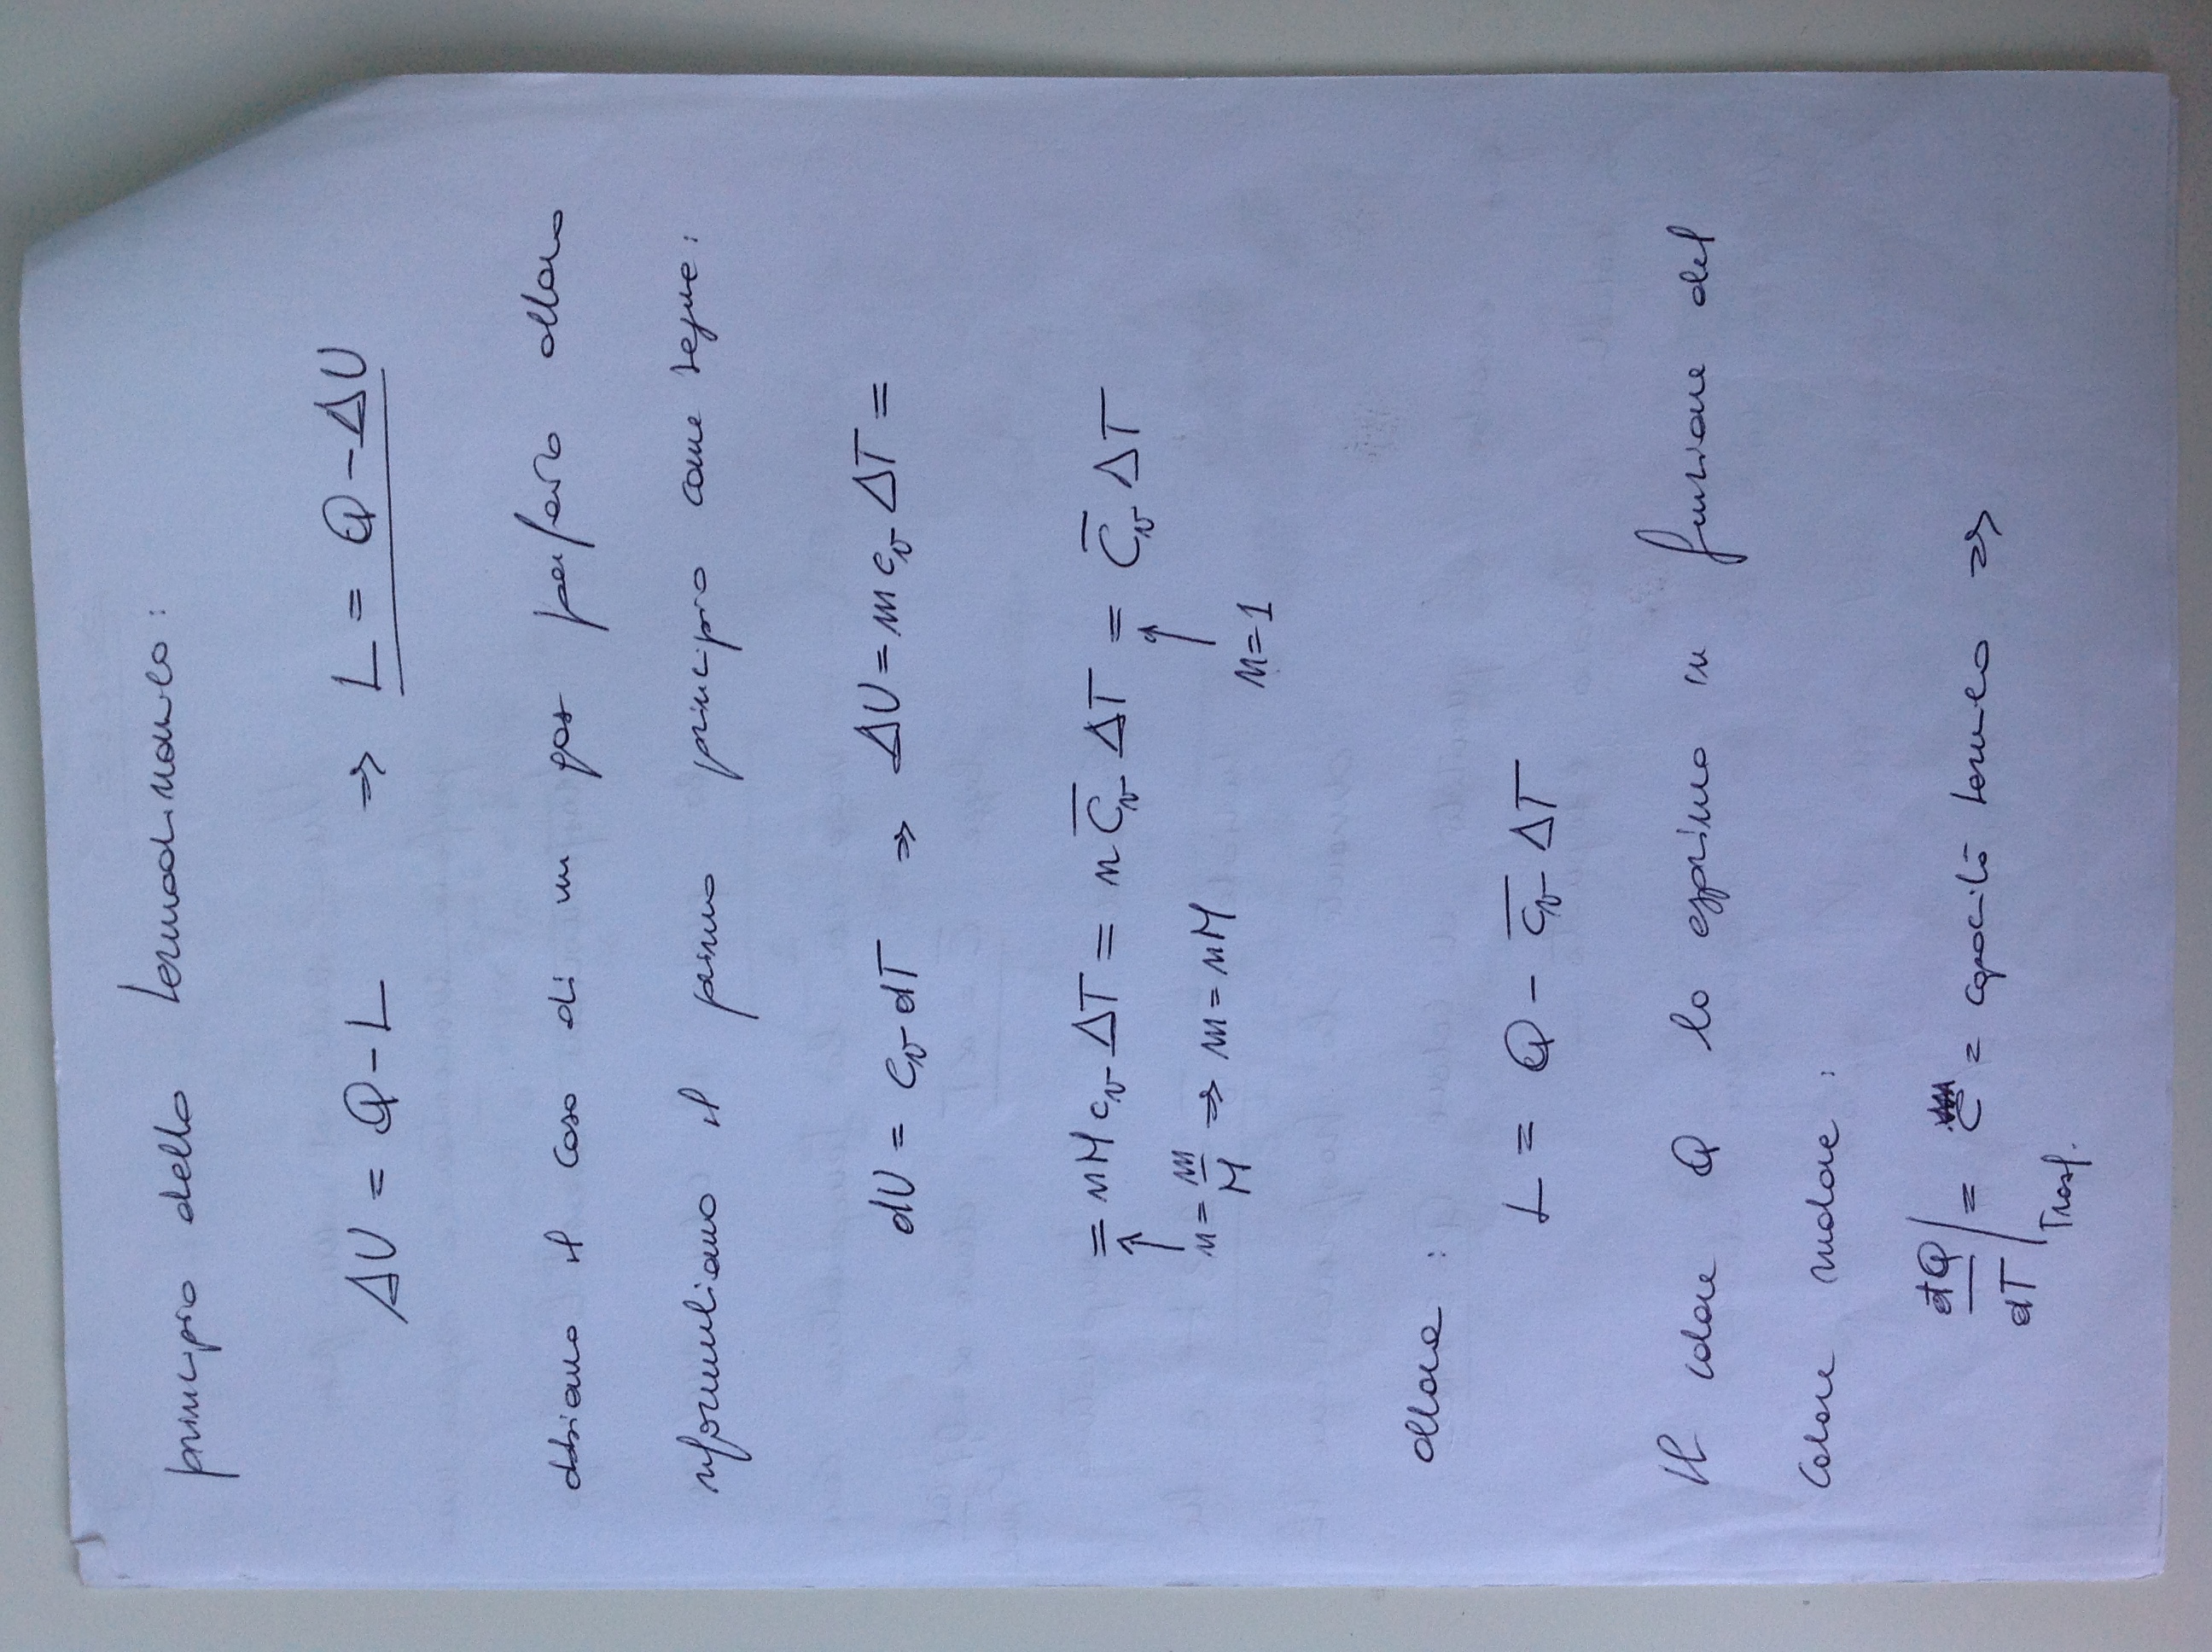 principio della termodinamica:
ΔU = Q - L ⇒ L = Q - ΔU
abbiamo il caso di un gas perfetto allora
riformuliamo il primo principio come segue:
dU = c_v dT ⇒ ΔU = m c_v ΔT =
= nM c_v ΔT = n C̅_v ΔT = C̅_v ΔT
n = m/M ⇒ m = nM n = 1
allora :
L = Q - C̅_v ΔT
Il calore Q lo esprimo in funzione del
calore molare :
dQ/dT |Trasf. = C = capacità termica ⇒